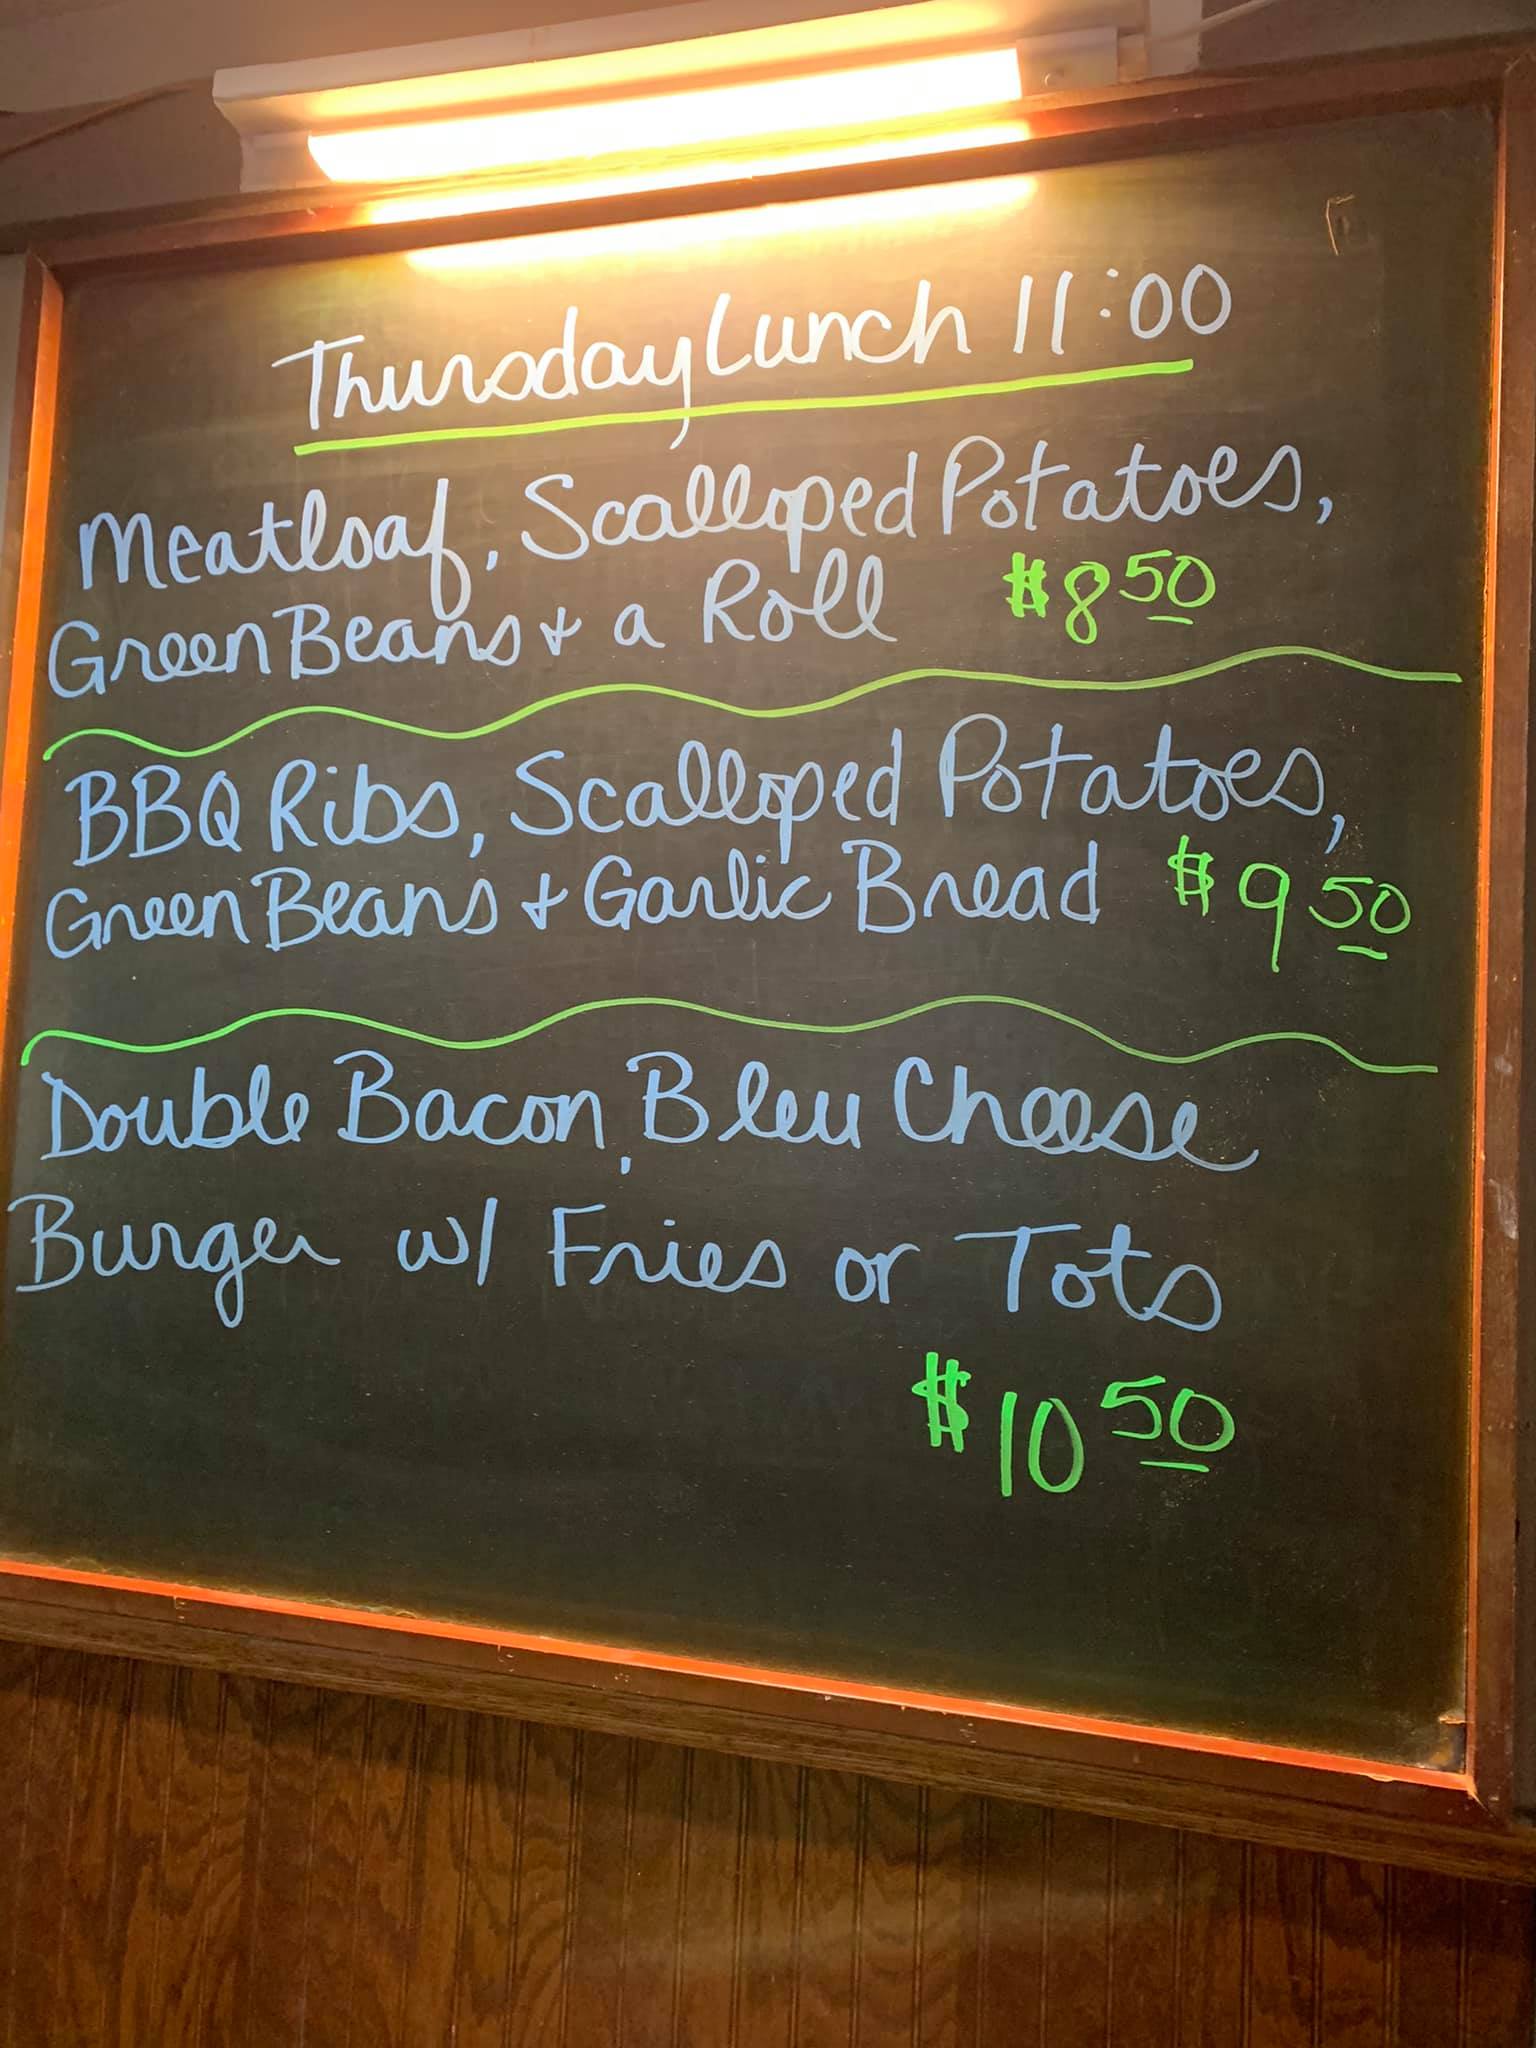 Thursday Lunch 11:00
Meatloaf, Scalloped Potatoes,
Green Beans + a Roll $8 50
BBQ Ribs, Scalloped Potatoes,
Green Beans + Garlic Bread $9 50
Double Bacon, Bleu Cheese
Burger w/ Fries or Tots
$10 50